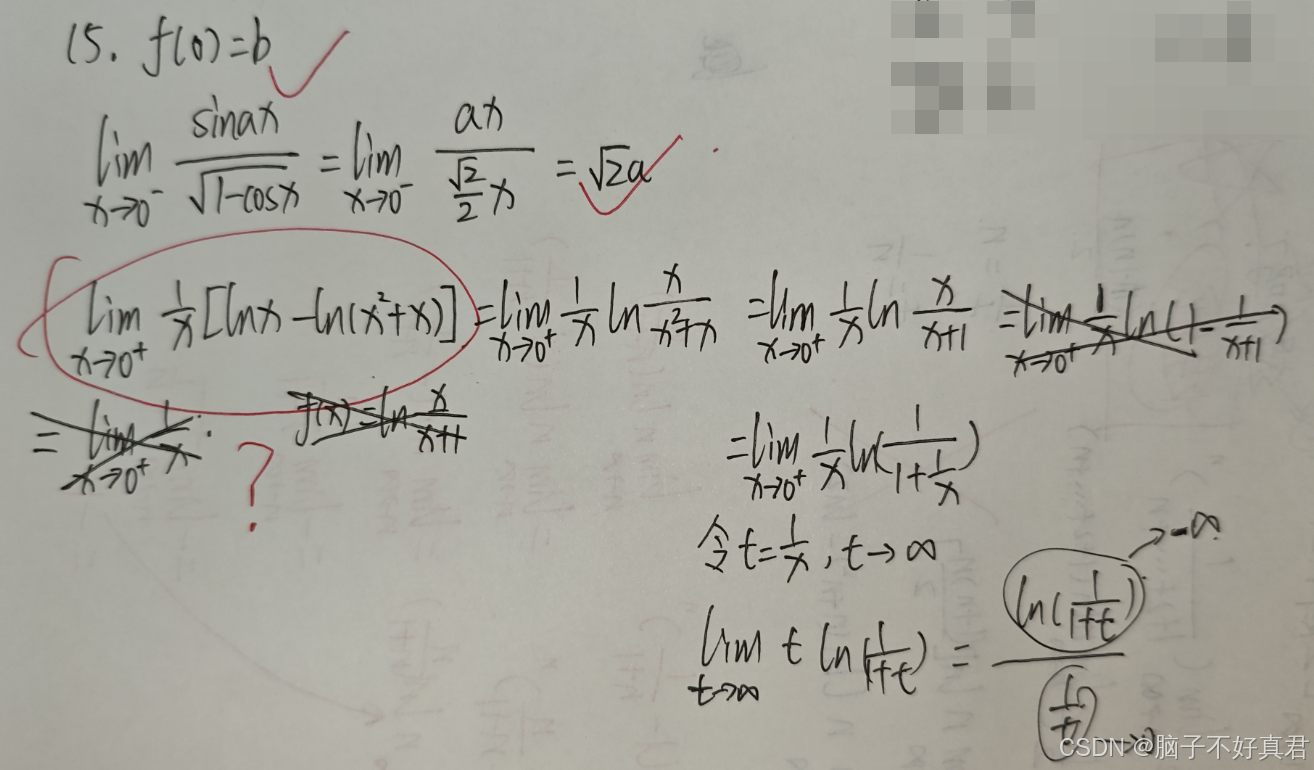 15. f(0)=b
lim x→0⁻ sinax/√(1-cosx) = lim x→0⁻ ax/((√2/2)x) = √2a
lim x→0⁺ 1/x[lnx-ln(x²+x)] = lim x→0⁺ 1/x ln x/(x²+x) = lim x→0⁺ 1/x ln x/(x+1) = lim x→0⁺ 1/x ln(1-1/(x+1))
= lim x→0⁺ 1/x · f(x)=ln x/(x+1)
?
= lim x→0⁺ 1/x ln(1/(1+1/x))
令t=1/x, t→∞
lim t→∞ t ln(1/(1+t)) = ln(1/(1+t))/(1/t)
→-∞
→0
CSDN @脑子不好真君